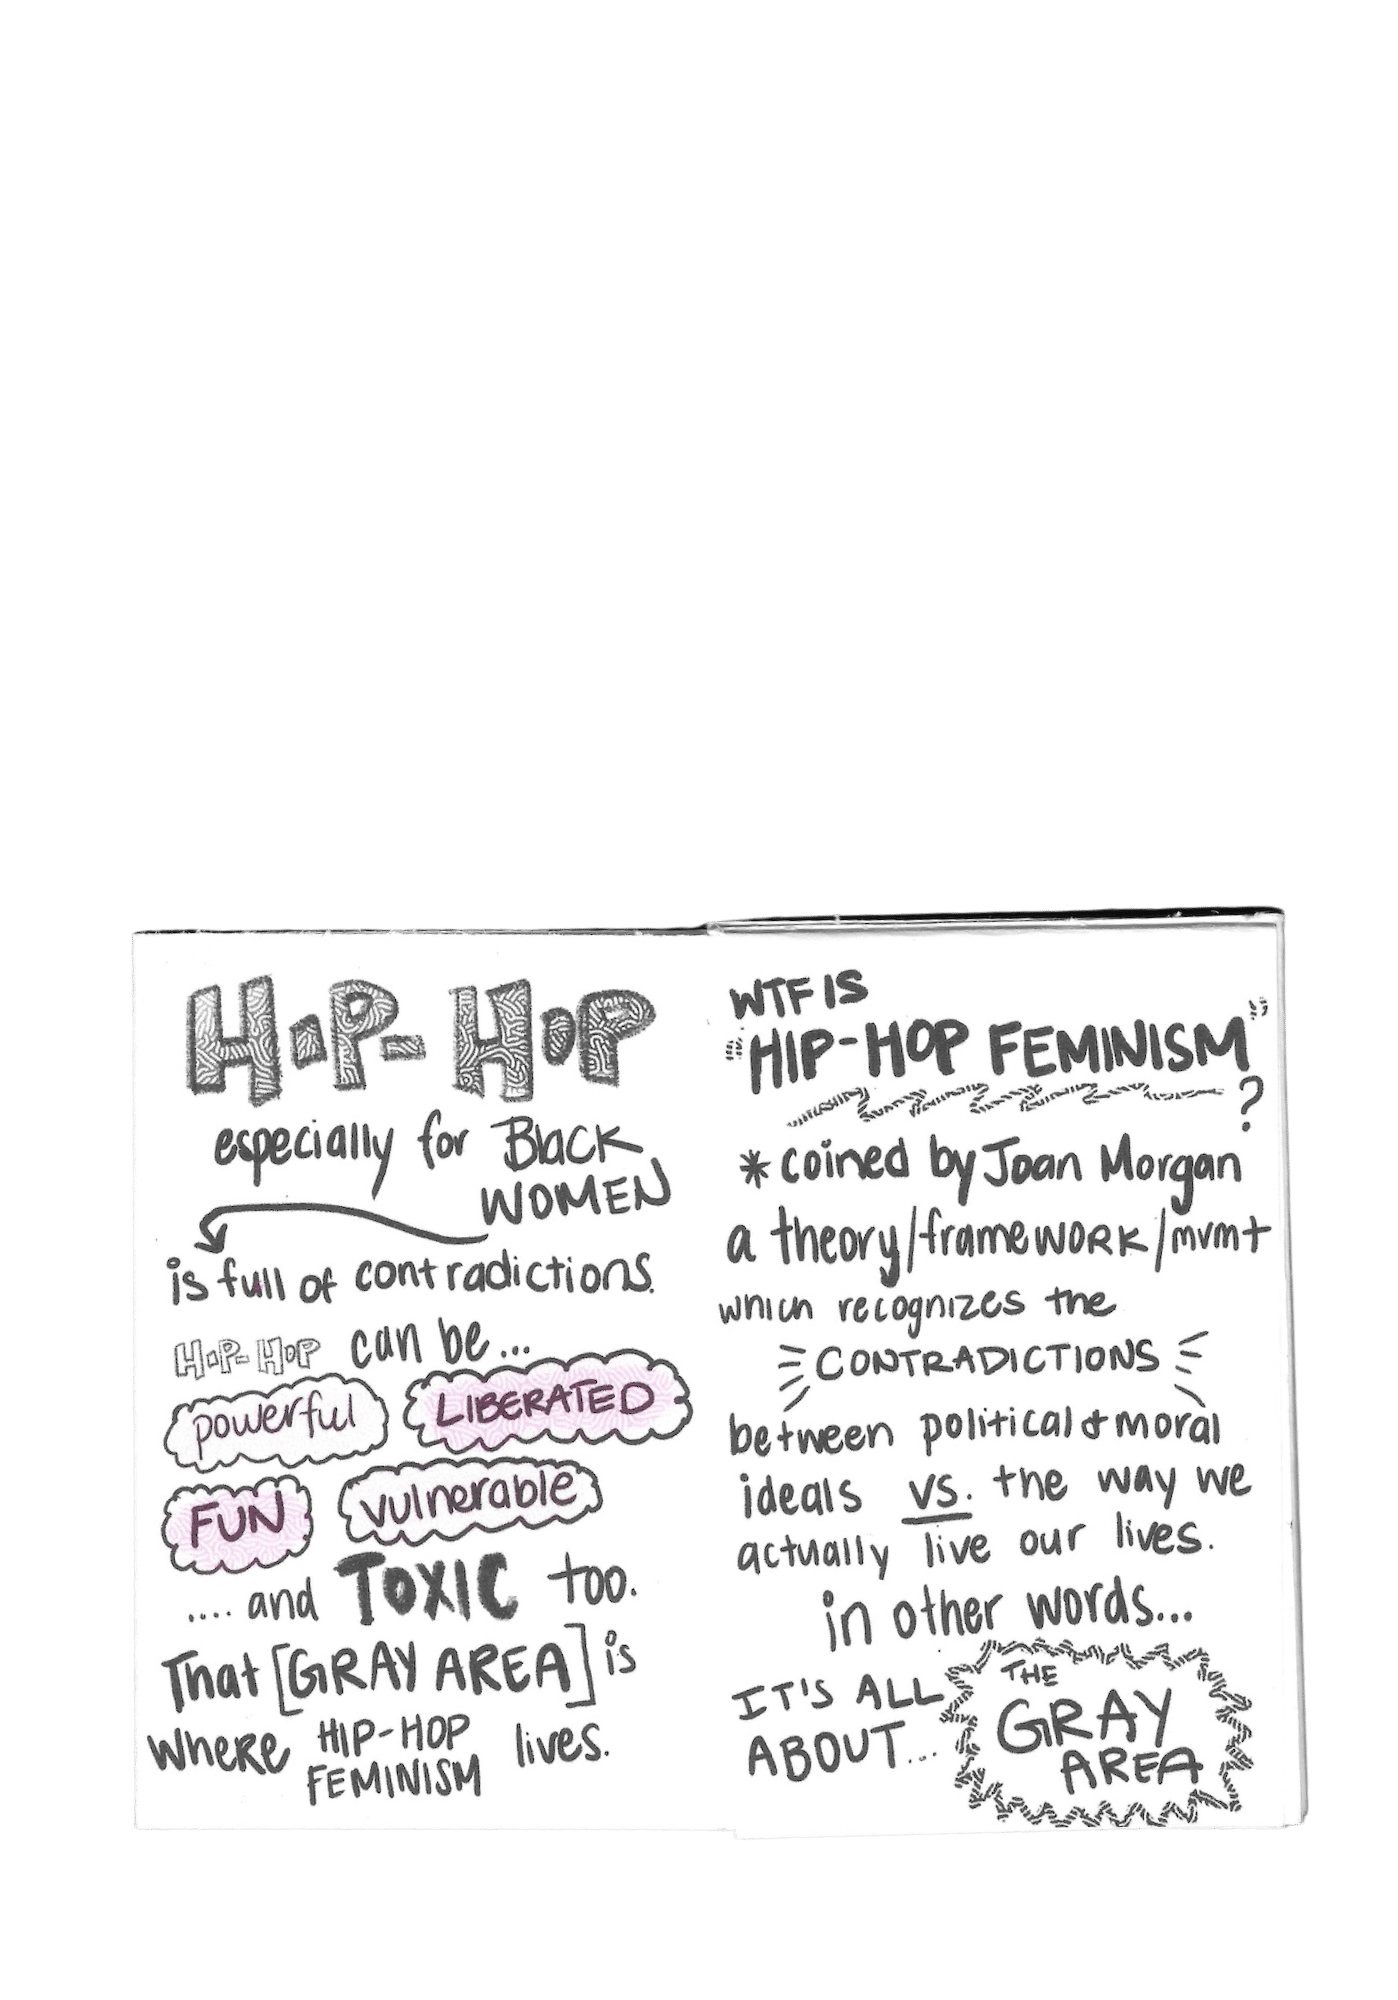 HIP-HOP
especially for Black
WOMEN
is full of contradictions.
HIP-HOP can be...
powerful LIBERATED
FUN vulnerable
.... and TOXIC too.
That [GRAY AREA] is
where HIP-HOP
FEMINISM lives.
WTF IS
"HIP-HOP FEMINISM"
?
* coined by Joan Morgan
a theory/framework/mvmt
which recognizes the
CONTRADICTIONS
between political & moral
ideals vs. the way we
actually live our lives.
in other words...
IT'S ALL
ABOUT...
THE
GRAY
AREA